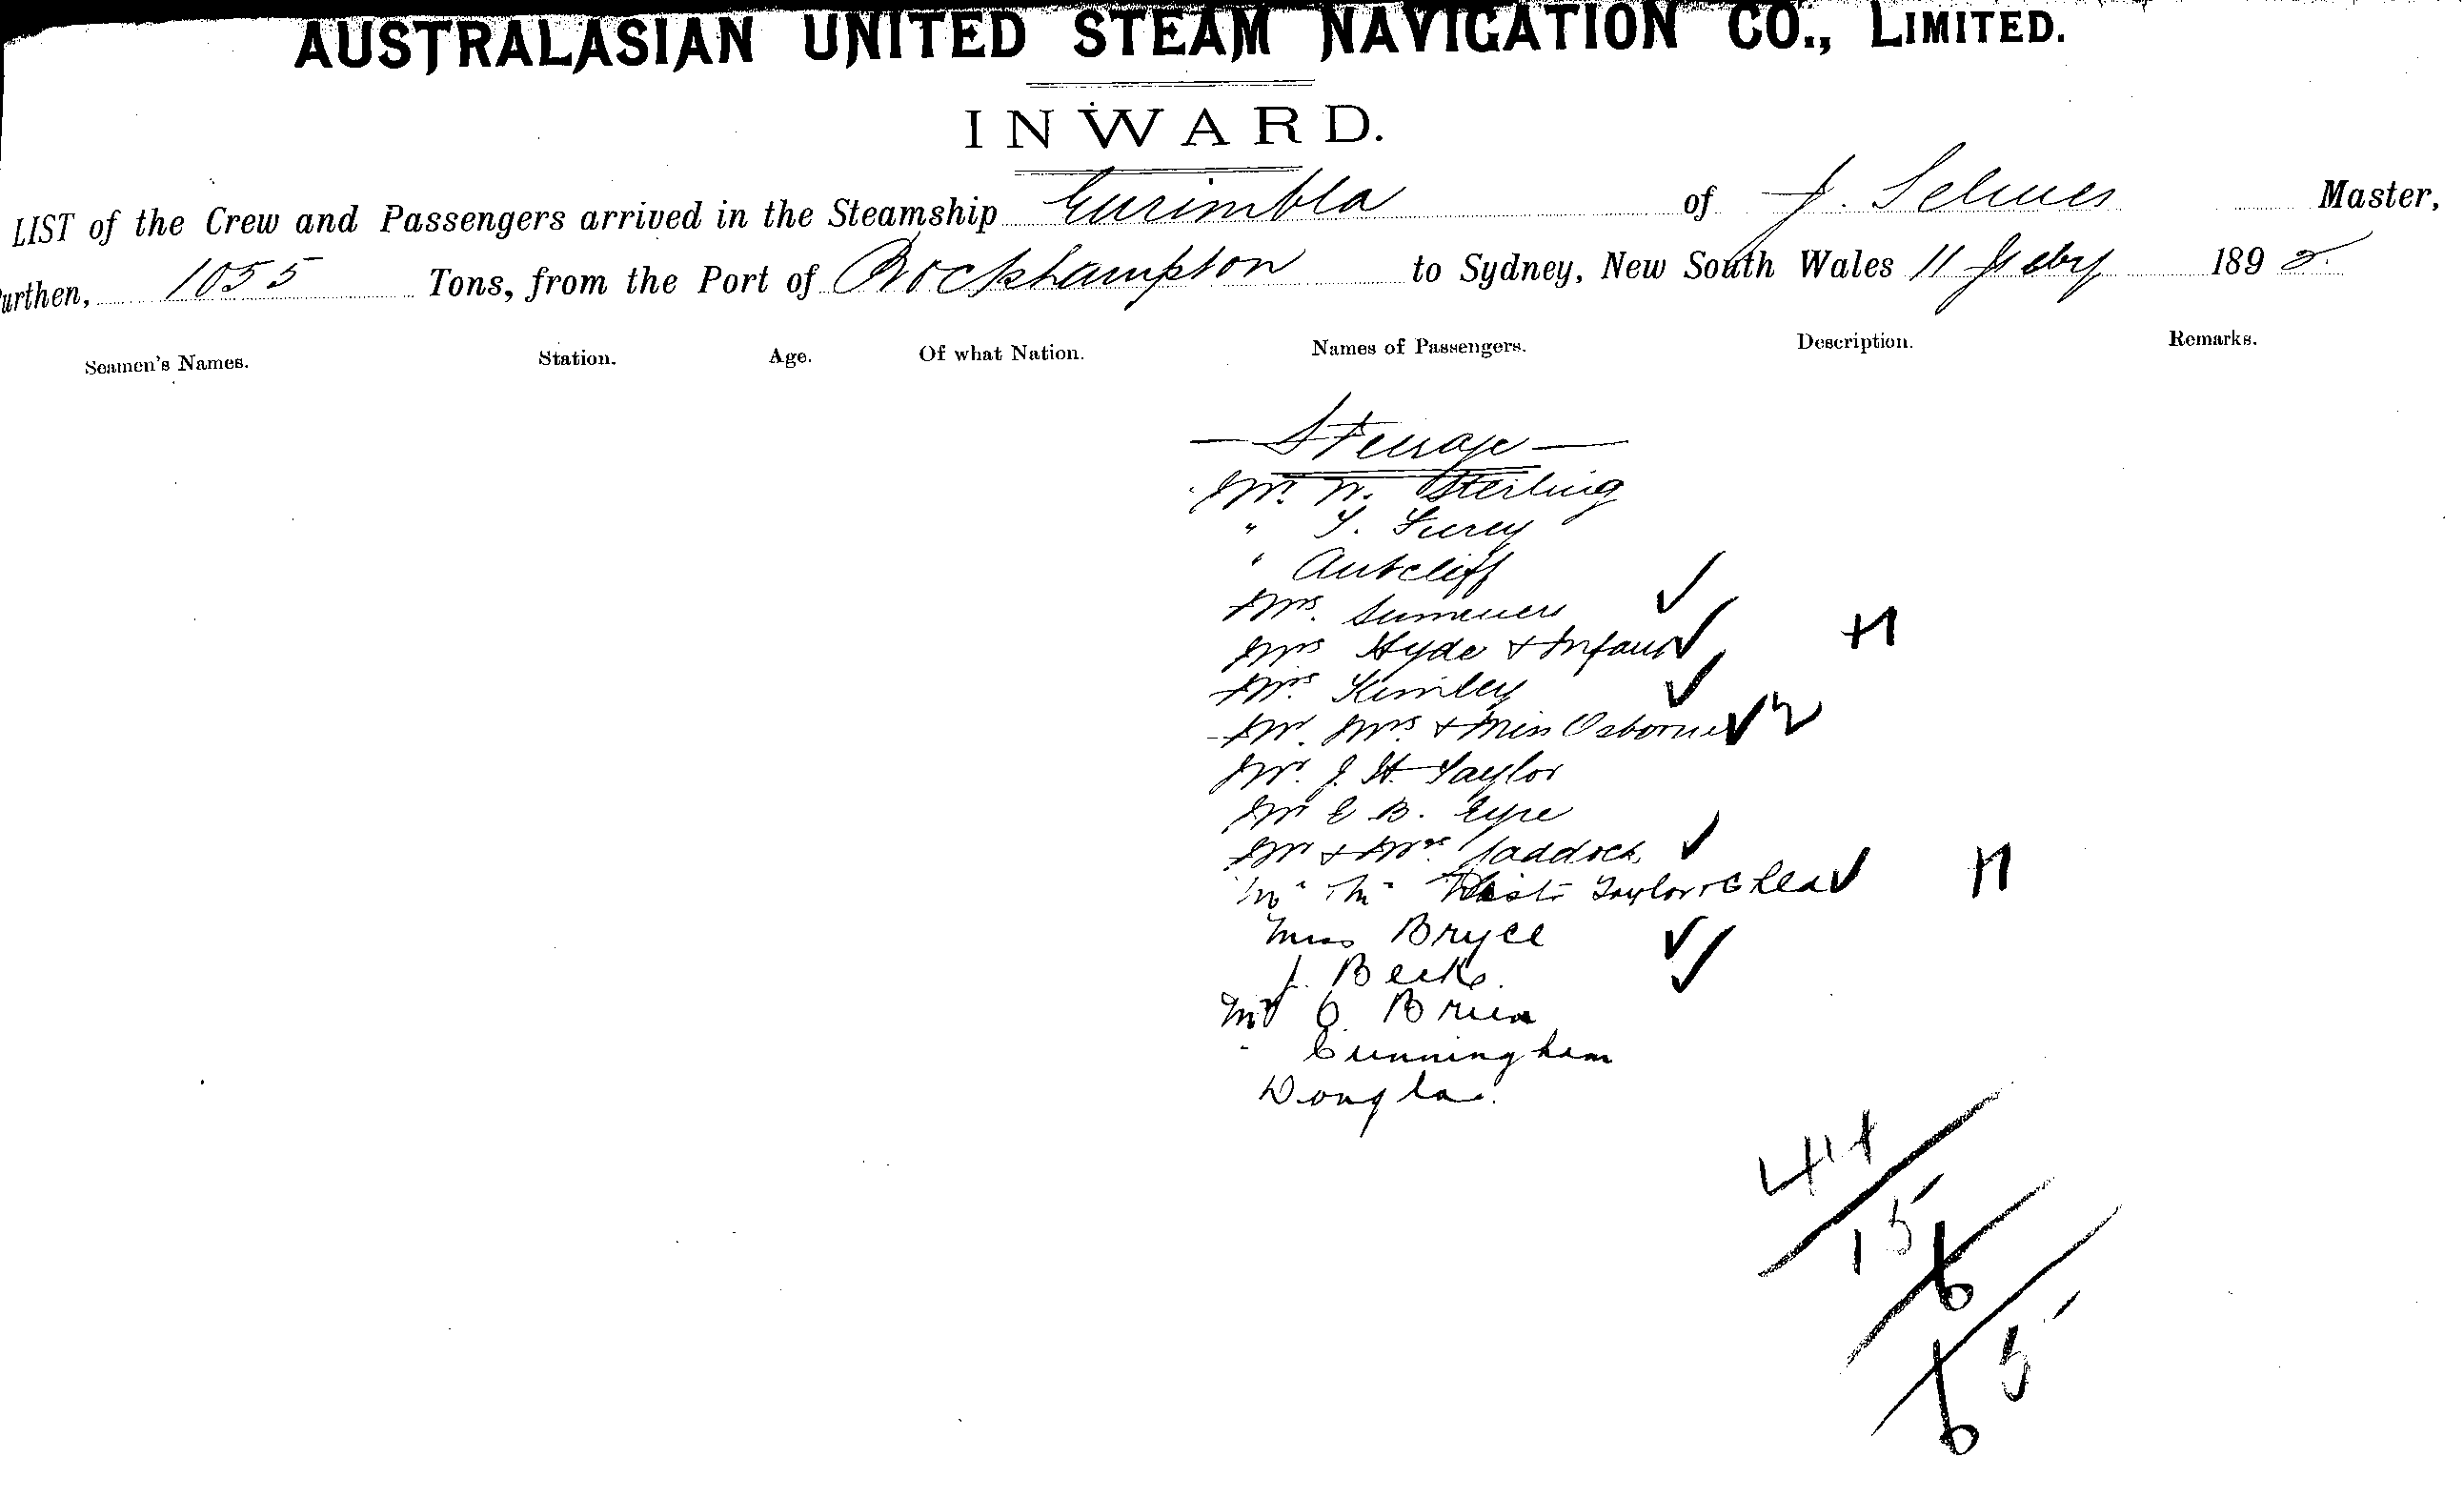 AUSTRALASIAN UNITED STEAM NAVIGATION CO., LIMITED.
INWARD.
LIST of the Crew and Passengers arrived in the Steamship Eurimbla of J. Selmes Master,
Burthen, 1055 Tons, from the Port of Rockhampton to Sydney, New South Wales 11 Feby 1892.
Seamen's Names. Station. Age. Of what Nation. Names of Passengers. Description. Remarks.
Steerage
Mr. W. Sterling
" T. Furey
" Antcliff
Mrs. Summers
Mrs Hyde & Infant
Mrs. Kimley
Mr. Mrs. & Miss Osborne 2
Mr. J. H. Taylor
Mr E B. Eyre
Mr & Mrs. Paddock
Taylor
Miss Bryce
J. Beeke.
Mr O. Brien
" Cunningham
Douglas.
15
6
5
6